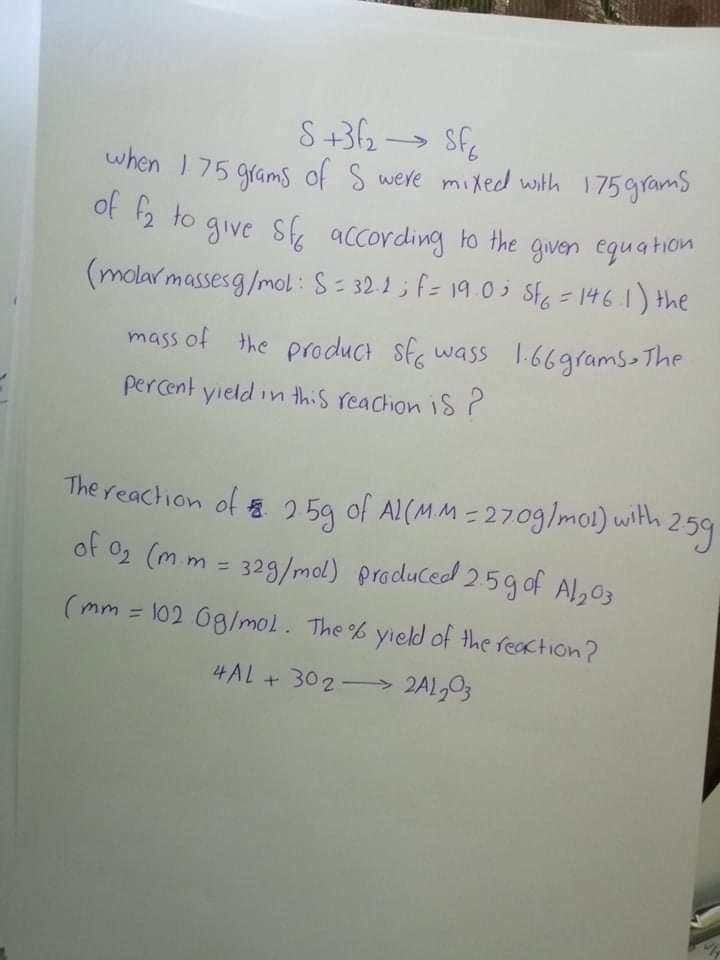 S + 3f2 → Sf6
when 1.75 grams of S were mixed with 1.75 grams
of f2 to give Sf6 according to the given equation
(molar masses g/mol: S = 32.1 ; f = 19.0 ; Sf6 = 146.1) the
mass of the product Sf6 wass 1.66 grams. The
percent yield in this reaction is ?
The reaction of 2.5g of Al (M.M = 27.0g/mol) with 2.5g
of O2 (m.m = 32g/mol) produced 2.5g of Al2O3
(mm = 102.0g/mol. The % yield of the reaction?
4AL + 3O2 → 2AL2O3